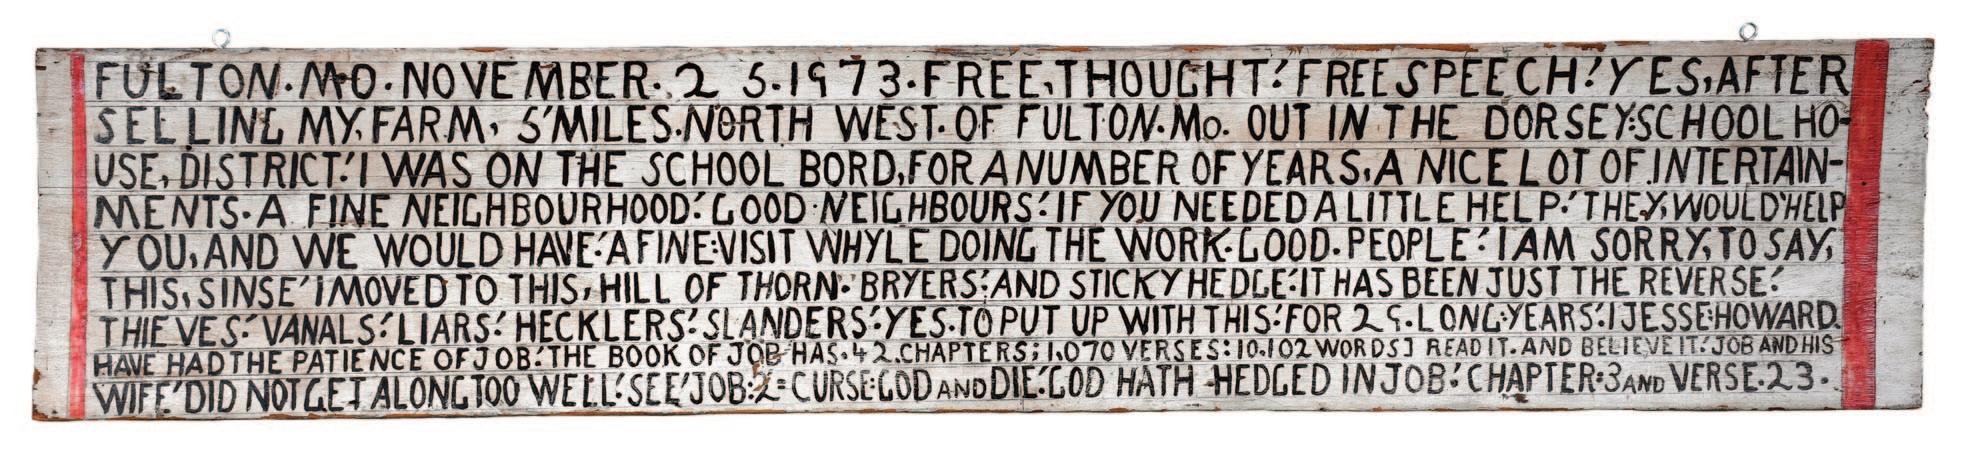 FULTON. MO. NOVEMBER. 2 5. 1973. FREE, THOUGHT! FREE SPEECH! YES, AFTER
SELLING MY, FARM, 5 MILES. NORTH WEST. OF FULTON. Mo. OUT IN THE DORSEY: SCHOOL HO-
USE, DISTRICT! I WAS ON THE SCHOOL BORD, FOR A NUMBER OF YEARS, A NICE LOT OF. INTERTAIN-
MENTS. A FINE NEIGHBOURHOOD! GOOD NEIGHBOURS! IF YOU NEEDED A LITTLE HELP! THEY, WOULD HELP
YOU, AND WE WOULD HAVE! A FINE: VISIT WHYLE DOING THE WORK. GOOD. PEOPLE! I AM SORRY, TO SAY,
THIS, SINSE' I MOVED TO THIS, HILL OF THORN. BRYERS! AND STICKY HEDGE! IT HAS BEEN JUST THE REVERSE!
THIEVES! VANALS! LIARS! HECKLERS! SLANDERS! YES. TO PUT UP WITH THIS! FOR 29. LONG: YEARS! I JESSE: HOWARD.
HAVE HAD THE PATIENCE OF JOB! THE BOOK OF JOB HAS. 42. CHAPTERS; 1,070 VERSES: 10,102 WORDS] READ IT. AND BELIEVE IT! JOB AND HIS
WIFE' DID NOT GET ALONG TOO WELL! SEE' JOB: 2= CURSE: GOD AND DIE! GOD HATH HEDGED IN JOB! CHAPTER: 3 AND VERSE. 23.